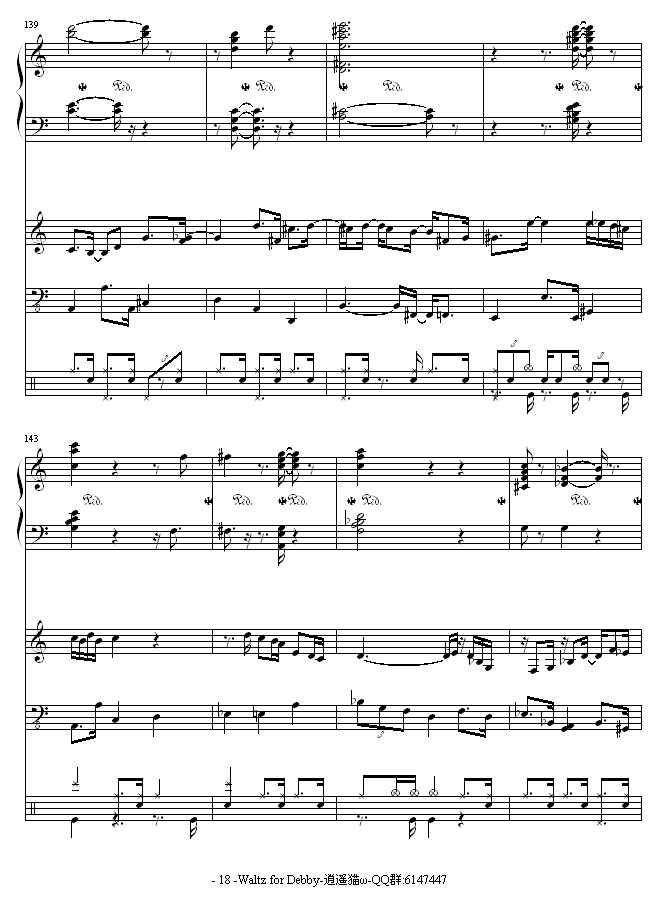 139
3
3
3
143
3
- 18 -Waltz for Debby-逍遥猫ω-QQ群:6147447